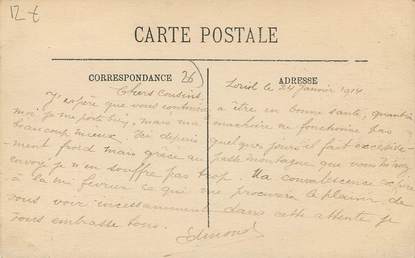 12 €
CARTE POSTALE
CORRESPONDANCE
26
ADRESSE
Loriol le 24 Janvier 1914
Chers Cousins,
J'espère que vous continuez à être en bonne santé, quant à
moi je me porte bien, mais ma machoire ne fonctionne pas
beaucoup mieux. Ici depuis quelques jours il fait excessive-
ment froid mais grâce au passe montagne que vous m'avez
envoyé je n'en souffre pas trop. Ma convalescence expire
à la mi fevrier ce qui me procurera le plaisir de
vous voir incessamment dans cette attente je
vous embrasse tous.
Edmond